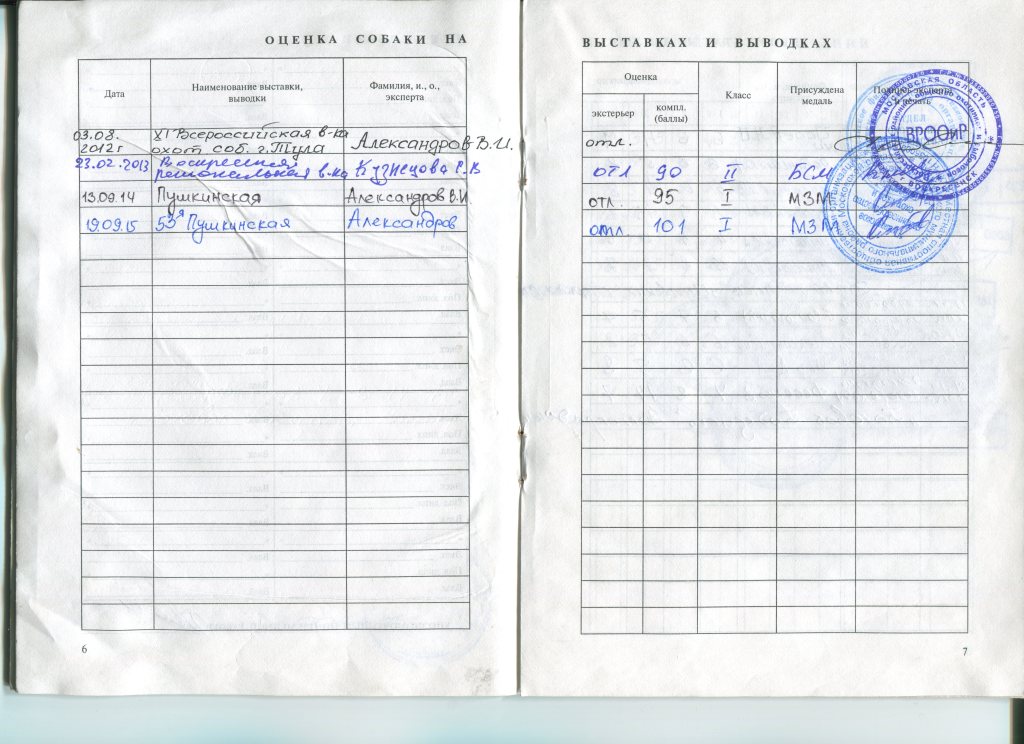 ОЦЕНКА СОБАКИ НА
Дата
Наименование выставки,
выводки
Фамилия, и., о.,
эксперта
03.08.
2012 г
XI Всероссийская в-ка
охот соб. г.Тула
Александров В.И.
23.02.2013
региональная в-ка
Кузнецова
13.09.14
Пушкинская
Александров В.И
19.09.15
53я Пушкинская
Александров
6
ВЫСТАВКАХ И ВЫВОДКАХ
Оценка
экстерьер
компл.
(баллы)
Класс
Присуждена
медаль
Подпись эксперта
и печать
отл.
отл 90 II БСМ
отл. 95 I МЗМ
отл. 101 I МЗМ
МОСКОВСКАЯ ОБЛАСТЬ
ВРООиР
ВОСКРЕСЕНСК
7